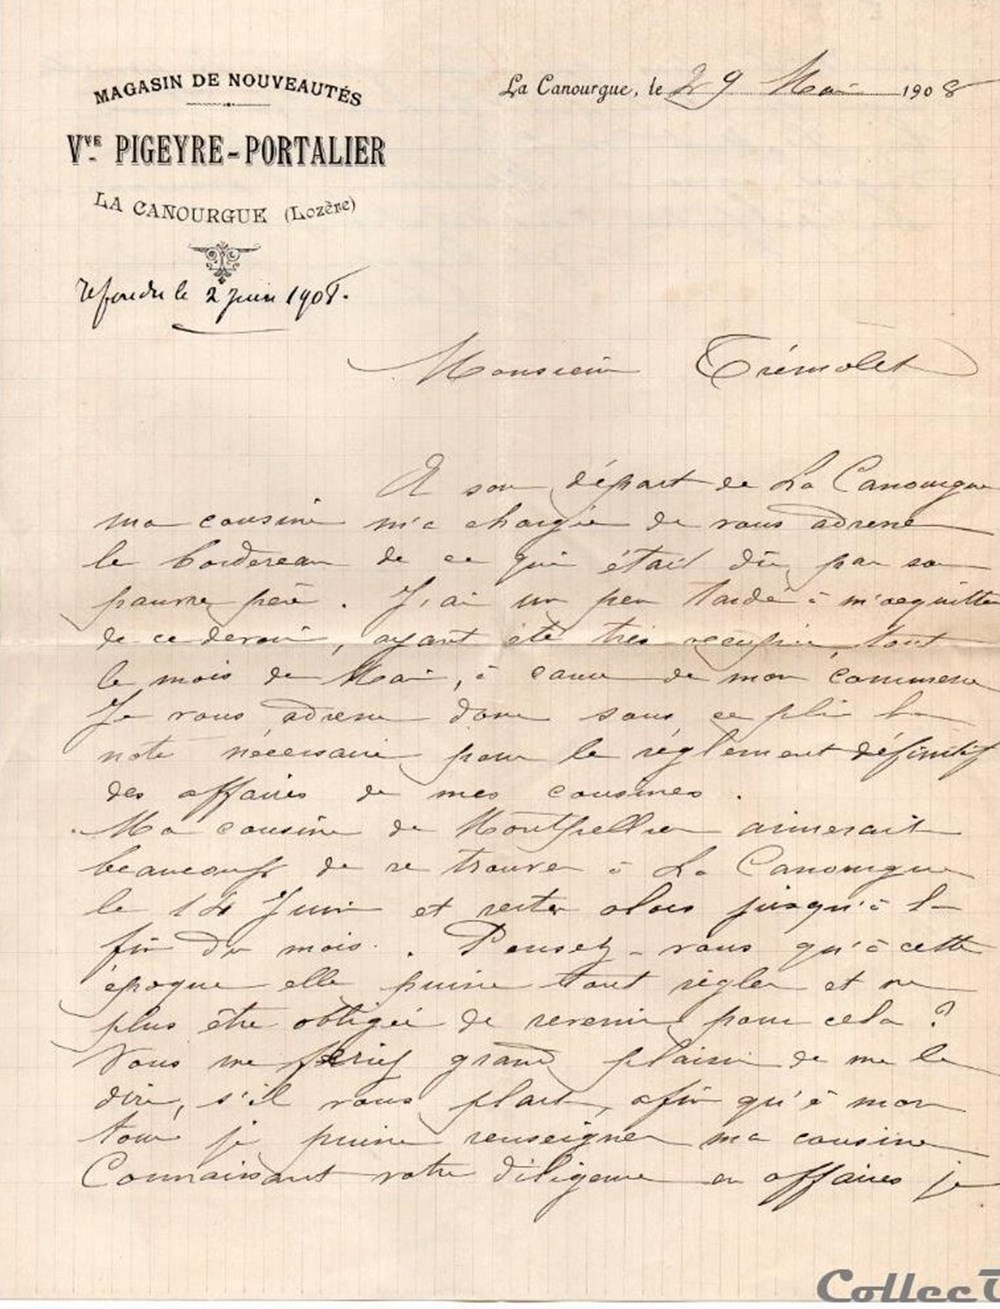 MAGASIN DE NOUVEAUTÉS
Vve PIGEYRE-PORTALIER
LA CANOURGUE (Lozère)
La Canourgue, le 29 Mai 1908
répondu le 2 juin 1908.
Monsieur Trémolet
A son départ de La Canourgue
ma cousine m'a chargée de vous adresser
le bordereau de ce qui était dû par son
pauvre père. J'ai un peu tardé à m'acquitter
de ce devoir, ayant été très occupée, tout
le mois de Mai, à cause de mon commerce
Je vous adresse donc sous ce pli la
note nécessaire pour le règlement définitif
des affaires de mes cousines.
Ma cousine de Montpellier aimerait
beaucoup de se trouver à La Canourgue
le 14 Juin et rester alors jusqu'à la
fin du mois. Pensez-vous qu'à cette
époque elle puisse tout régler et ne
plus être obligée de revenir pour cela ?
Vous me feriez grand plaisir de me le
dire, s'il vous plait, afin qu'à mon
tour je puisse renseigner ma cousine
Connaissant votre diligence en affaires je